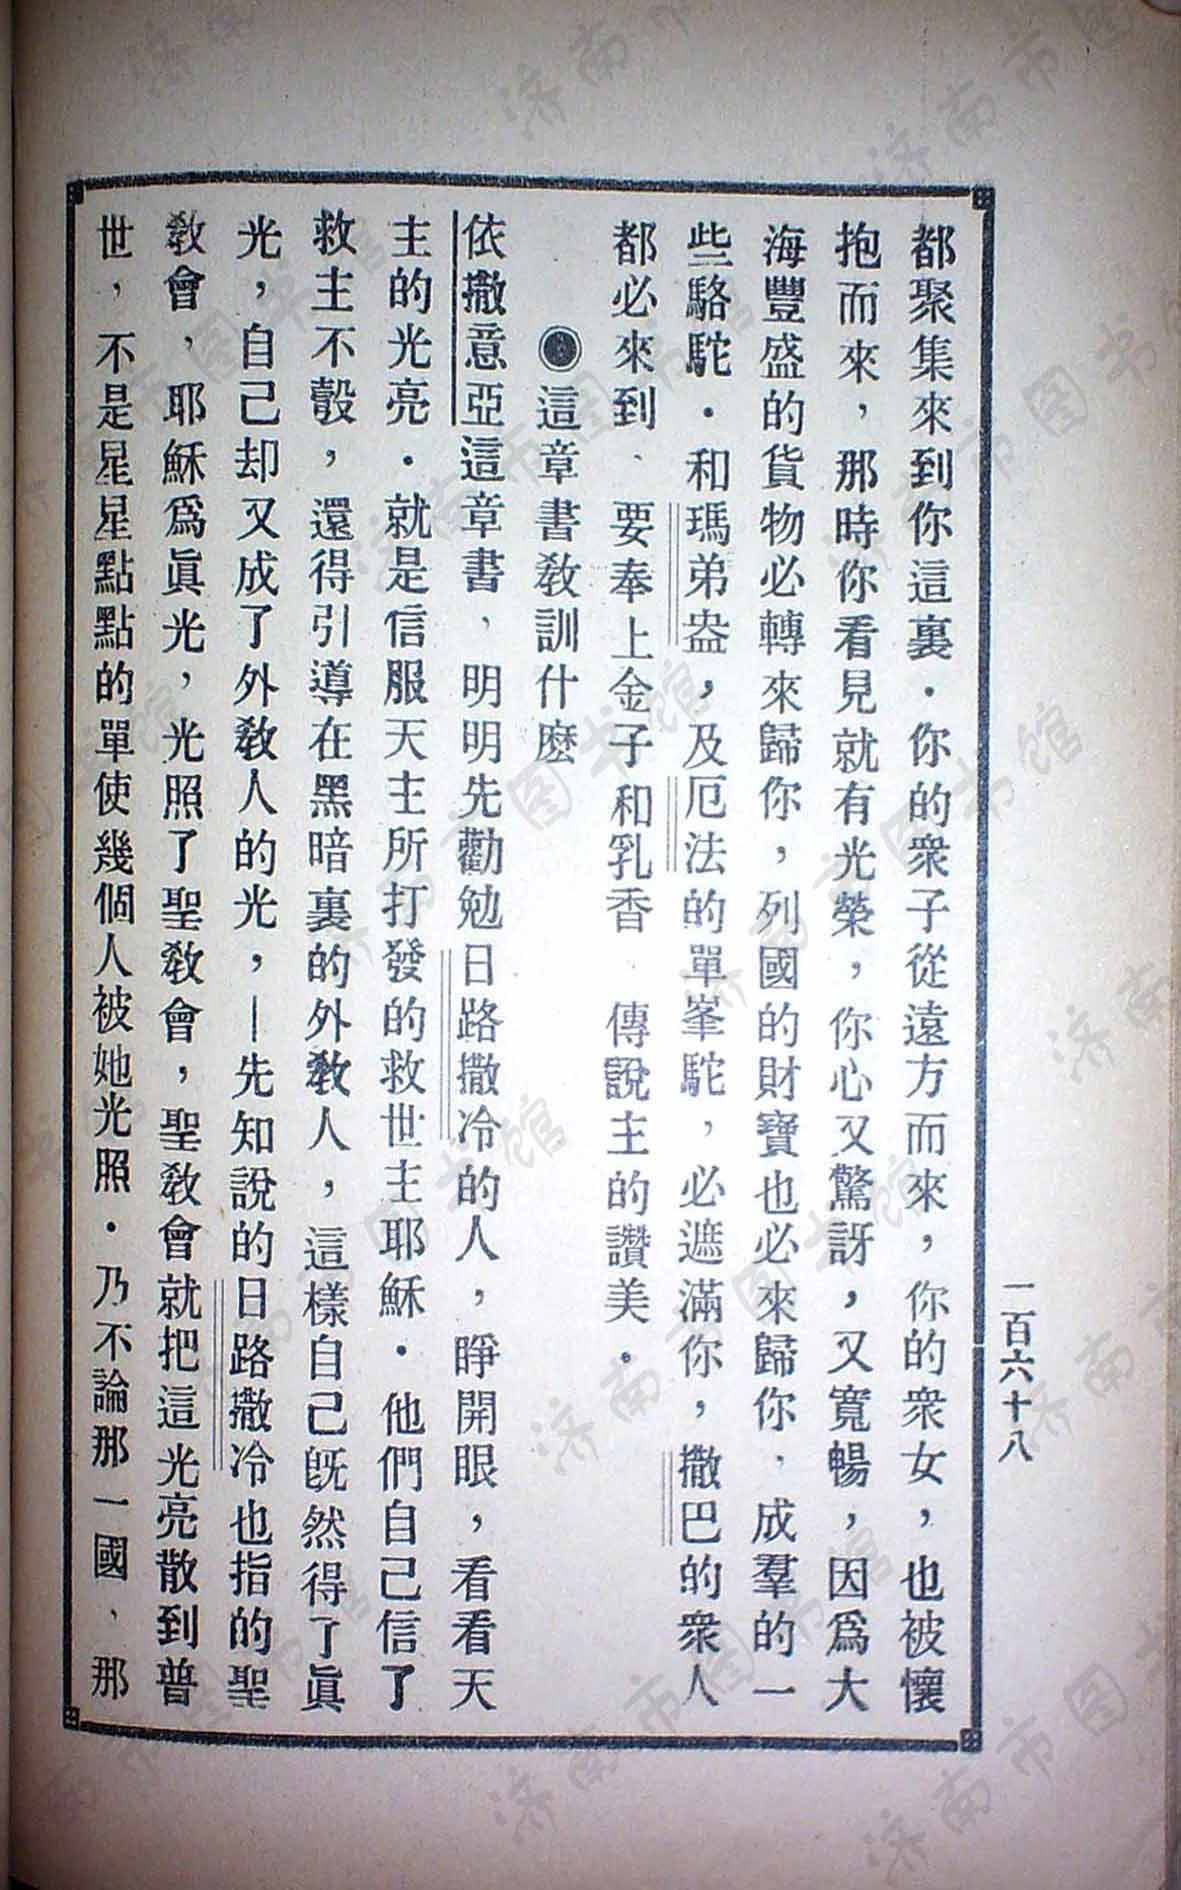 都聚集來到你這裏．你的衆子從遠方而來，你的衆女，也被懷
抱而來，那時你看見就有光榮，你心又驚訝，又寬暢，因爲大
海豐盛的貨物必轉來歸你，列國的財寶也必來歸你、成羣的一
些駱駝．和瑪弟盎，及厄法的單峯駝，必遮滿你，撒巴的衆人
都必來到、要奉上金子和乳香　傳說主的讚美．
◉這章書敎訓什麽
依撒意亞這章書，明明先勸勉日路撒冷的人，睜開眼，看看天
主的光亮．就是信服天主所打發的救世主耶穌．他們自己信了
救主不彀，還得引導在黑暗裏的外敎人，這樣自己旣然得了眞
光，自己却又成了外敎人的光，—先知說的日路撒冷也指的聖
敎會，耶穌爲眞光，光照了聖敎會，聖敎會就把這光亮散到普
世，不是星星點點的單使幾個人被她光照．乃不論那一國、那
一百六十八
济南市图书馆